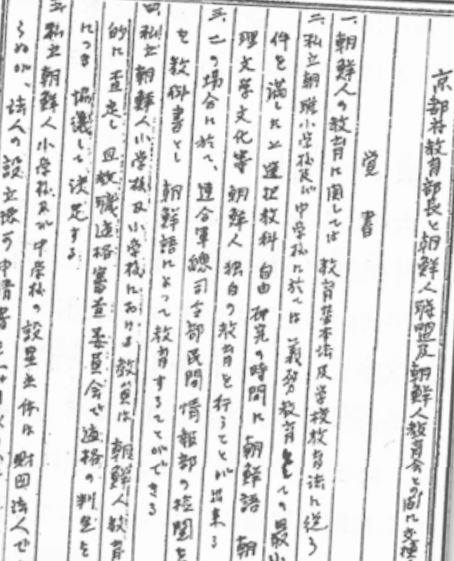 京都府教育部長と朝鮮人聯盟及朝鮮人教育会との間に交換
覚書
一、朝鮮人の教育に関しては教育基本法及学校教育法に従う
二、私立朝鮮小学校及び中学校に於ては義務教育としての最小
件を満した上選択教科自由研究の時間に朝鮮語 朝
歴文学文化等朝鮮人独自の教育を行うことが出来る
三、この場合に於て、連合軍総司令部民間情報部の検閲を
を教科書とし朝鮮語によって教育することができる
四、私立朝鮮人小学校及小学校における教員は朝鮮人教育
的に査定し且教職適格審査委員会で適格の判定を
につき協議して決定する
五、私立朝鮮人小学校及び中学校の設置主体は財団法人で
らぬが、法人の設立認可申請書を